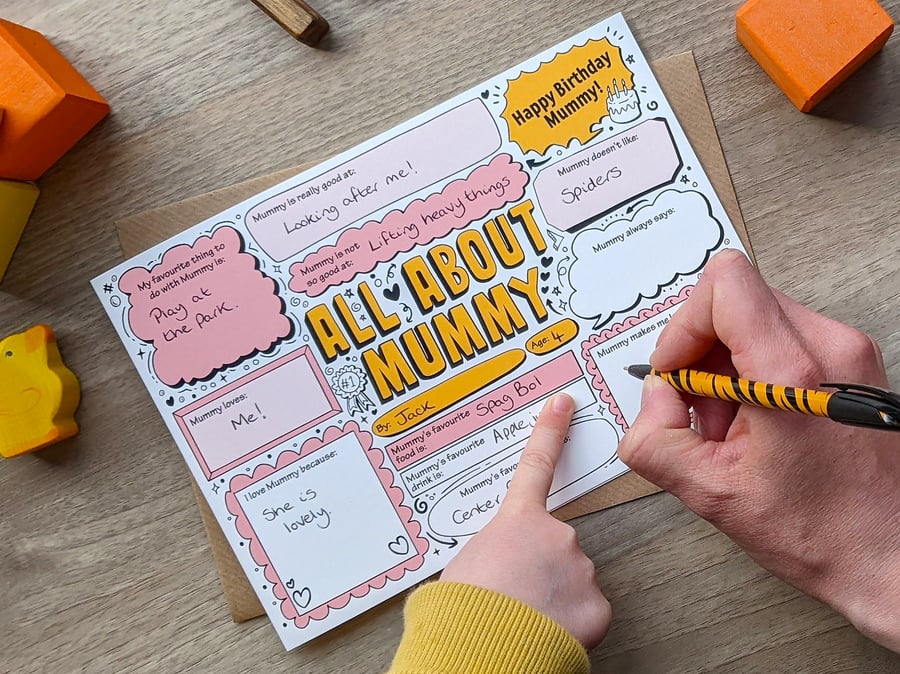 Happy Birthday
Mummy!
Mummy is really good at:
Looking after me!
Mummy doesn't like:
Spiders
Mummy is not
so good at:
Lifting heavy things
Mummy always says:
My favourite thing to
do with Mummy is:
Play at
the park.
ALL ABOUT
MUMMY
#1
By: Jack
Age: 4
Mummy makes me
Mummy loves:
Me!
Mummy's favourite
food is:
Spag Bol
Mummy's favourite
drink is:
Apple
Mummy's
Center
I love Mummy because:
She is
lovely.